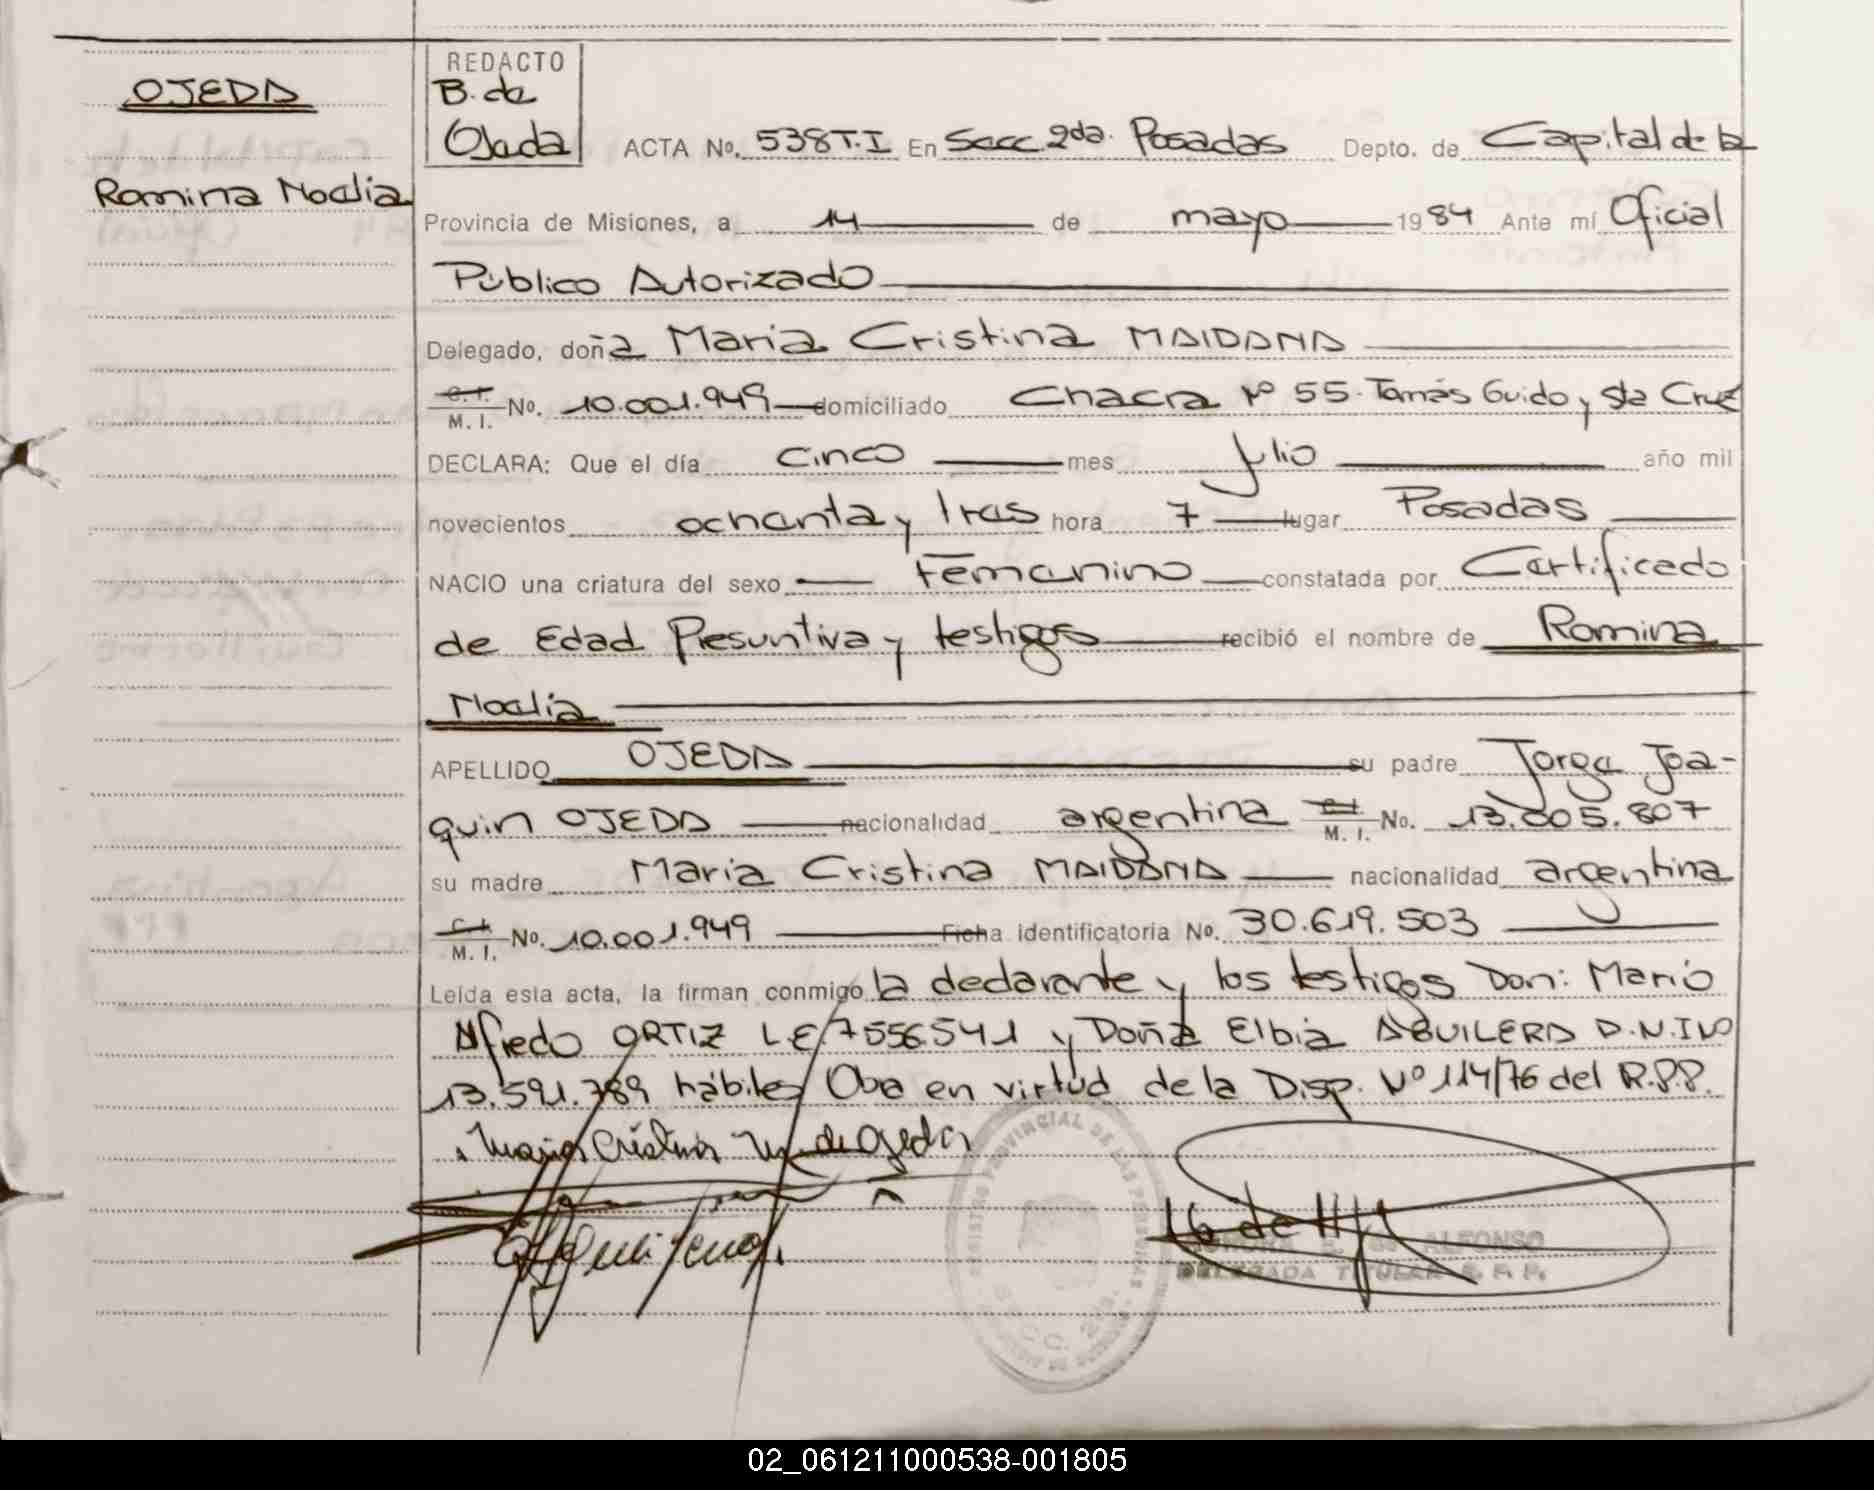 OJEDA
Romina Noelia
REDACTO
B. de
Ojeda
ACTA No. 538 T.I En Secc 2da. Posadas Depto. de Capital de la
Provincia de Misiones, a 14 de mayo 1984 Ante mí Oficial
Público Autorizado
Delegado, doña Maria Cristina MAIDANA
C. I. M. I. No. 10.001.949 domiciliado Chacra Nº 55. Tomás Guido y Sta Cruz
DECLARA: Que el día cinco mes julio año mil
novecientos ochenta y tres hora 7 lugar Posadas
NACIO una criatura del sexo Femenino constatada por Certificado
de Edad Presuntiva y testigos recibió el nombre de Romina
Noelia
APELLIDO OJEDA su padre Jorge Joa-
quin OJEDA nacionalidad argentina C.I. M. I. No. 13.005.807
su madre Maria Cristina MAIDANA nacionalidad argentina
C.I. M. I. No. 10.001.949 Ficha identificatoria No. 30.619.503
Leída esta acta, la firman conmigo la declarante y los testigos Don: Mario
Alfredo ORTIZ L.E. 7556.541 y Doña Elbia AGUILERA D.N.I Nº
13.591.789 hábiles Obe en virtud de la Disp. Nº 114/76 del R.P.P.
Maria Cristina M. de Ojeda
REGISTRO PROVINCIAL DE LAS PERSONAS
SECC. 2da.
ALFONSO
DELEGADA TITULAR R. P. P.
02_061211000538-001805